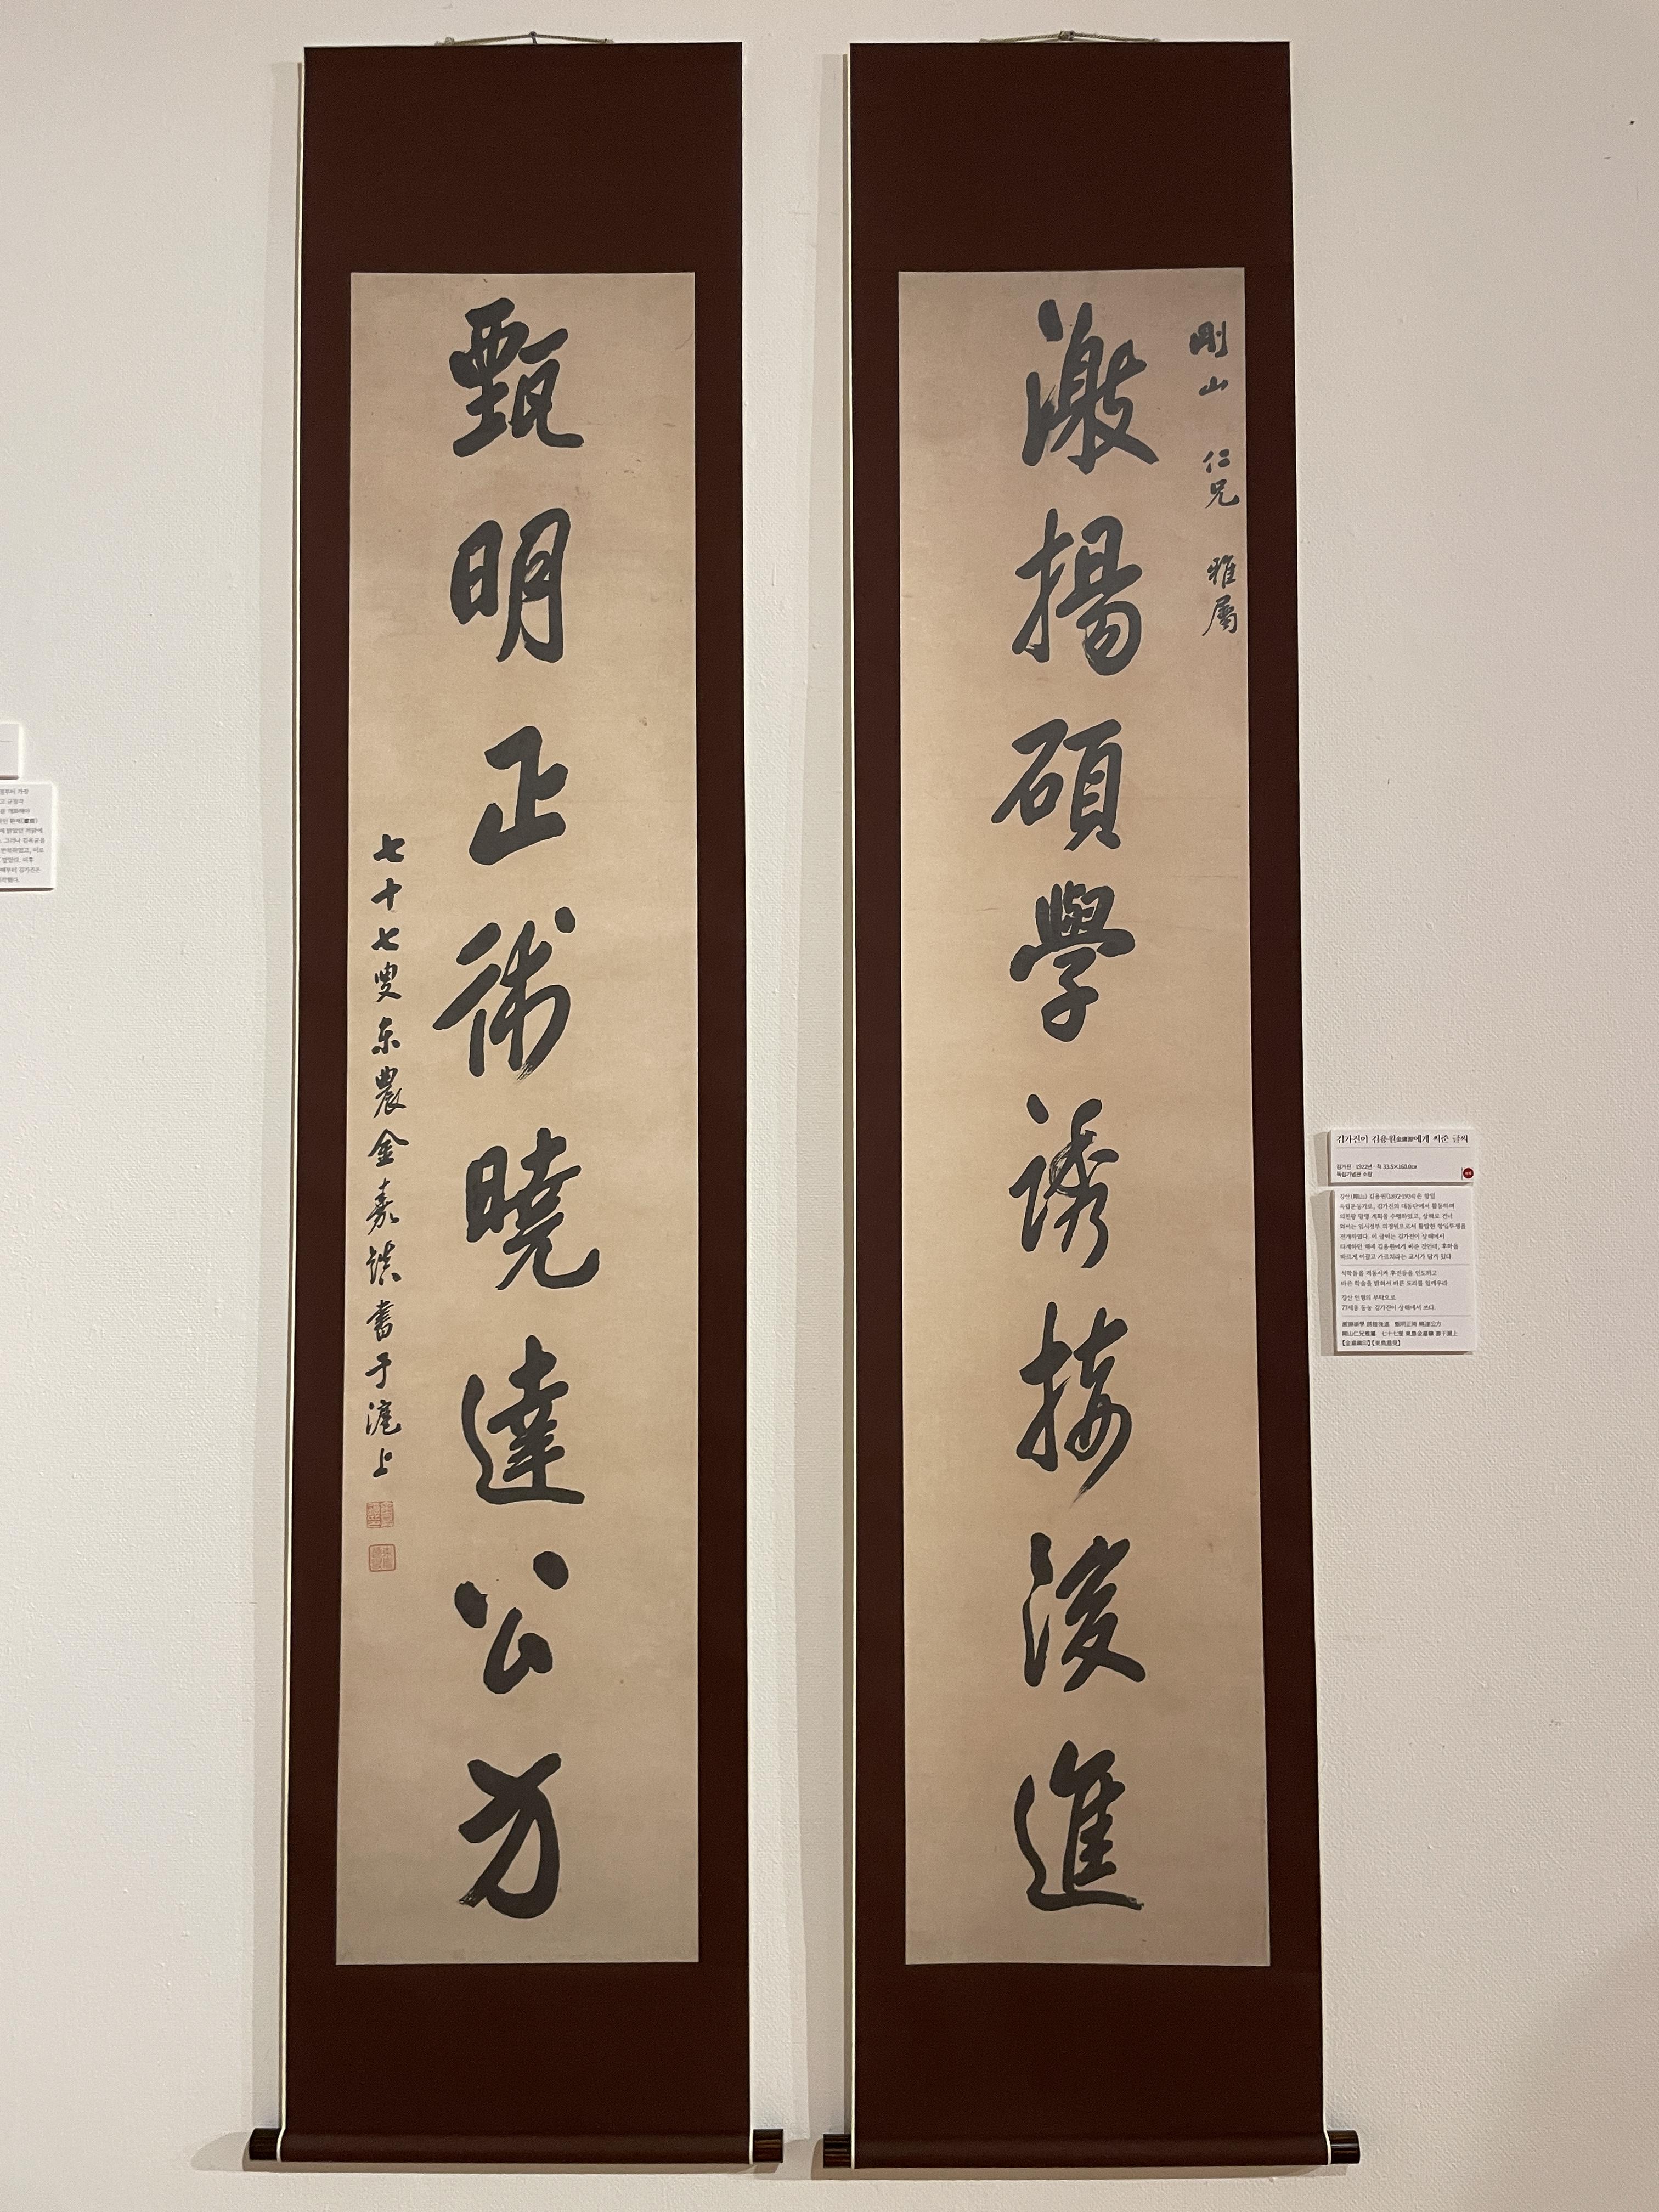 剛山 仁兄 雅屬
激揚碩學誘掖後進
甄明正術曉達公方
七十七叟东農金嘉鎮書于滬上
김가진이 김용원金庸源에게 써준 글씨
김가진 · 1922년 · 지 33.5×160.0㎝
독립기념관 소장
강산(剛山) 김용원(1892-1934)은 항일
독립운동가로, 김가진의 대동단에서 활동하며
의친왕 망명 계획을 수행하였고, 상해로 건너
와서는 임시정부 의정원으로서 활발한 항일투쟁을
전개하였다. 이 글씨는 김가진이 상해에서
타계하던 해에 김용원에게 써준 것인데, 후학을
바르게 이끌고 가르치라는 교시가 담겨 있다.
석학들을 격동시켜 후진들을 인도하고
바른 학술을 밝혀서 바른 도리를 일깨우라
강산 인형의 부탁으로
77세옹 동농 김가진이 상해에서 쓰다.
激揚碩學 誘掖後進 甄明正術 曉達公方
剛山仁兄雅屬 七十七叟 東農金嘉鎭 書于滬上